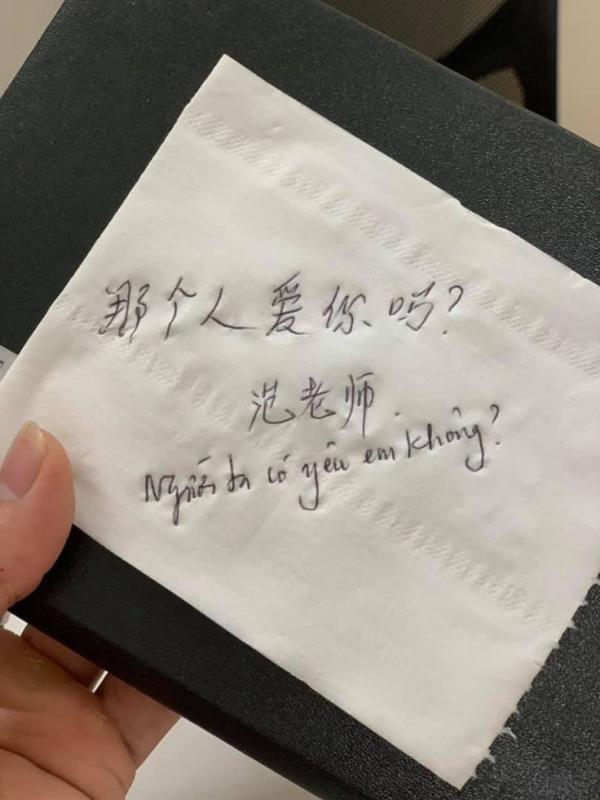 那个人爱你吗?
范老师.
Người ta có yêu em không?